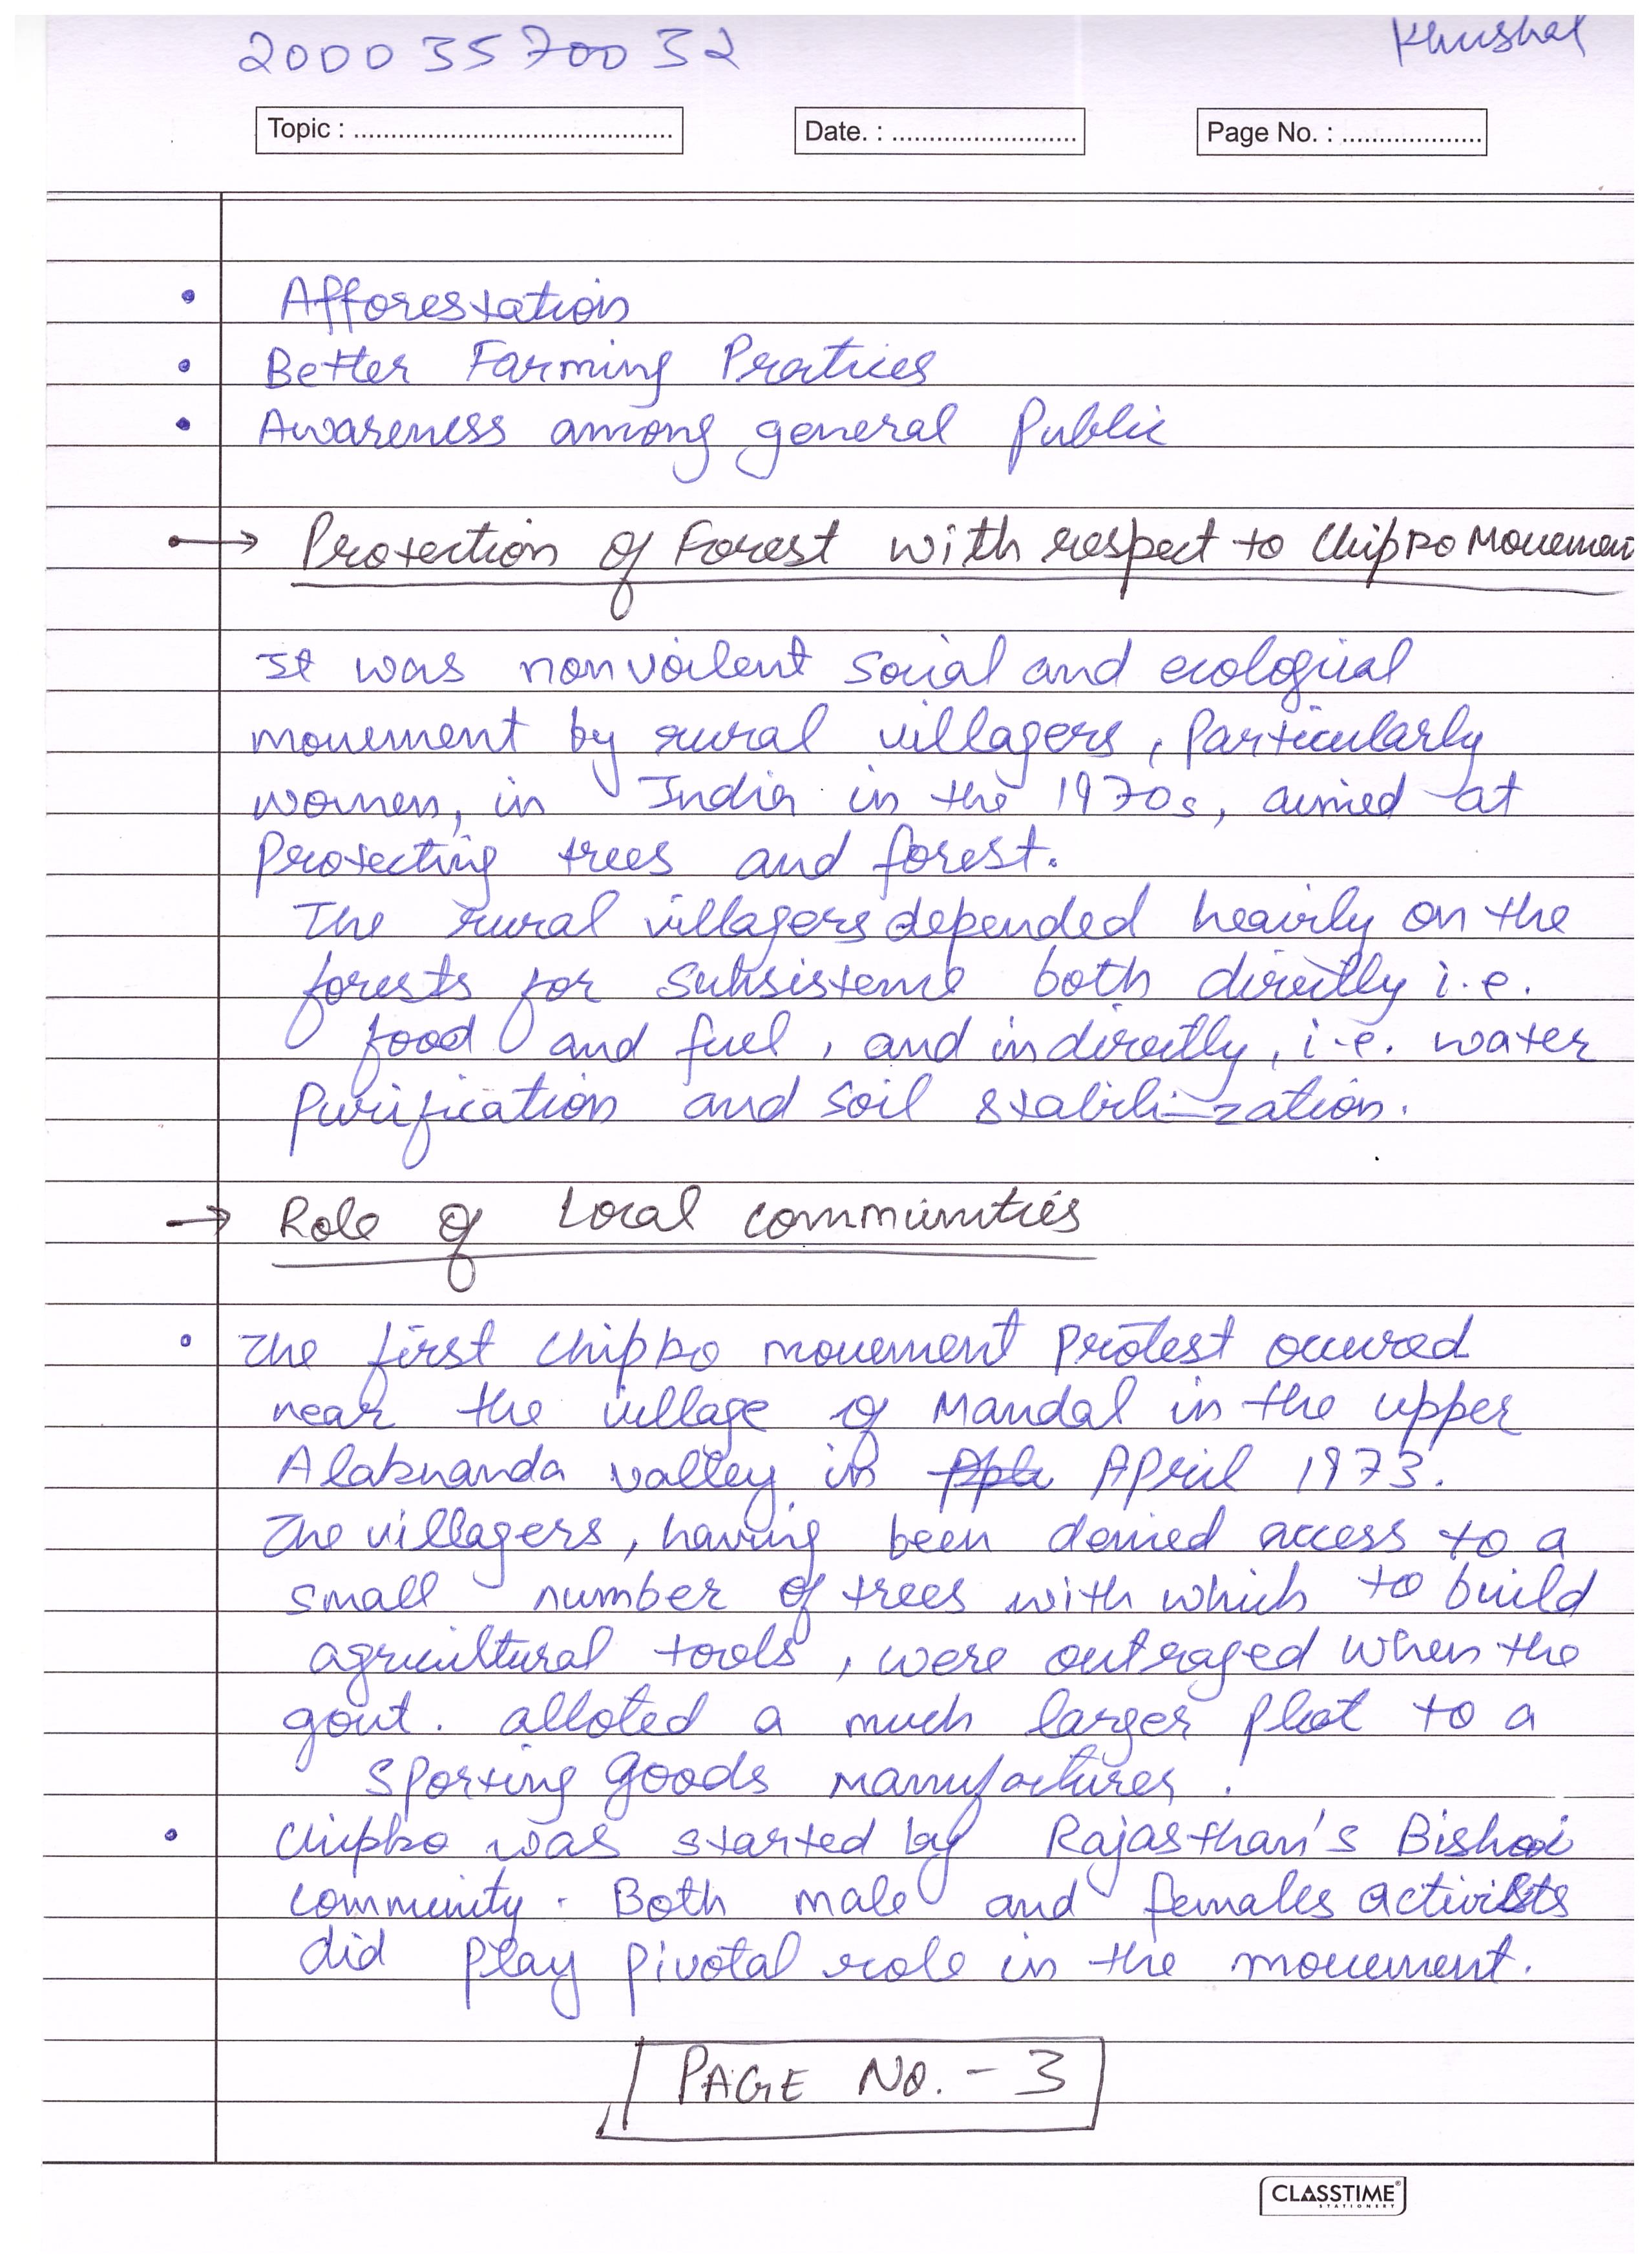 20003570032
Khushal
Topic : ............................................
Date. : ..........................
Page No. : ...................
• Afforestation
• Better Farming Pratices
• Awareness among general Public
→ Protection of Forest with respect to Chipko Movemen
It was nonvoilent social and ecological
movement by rural villagers, particularly
women, in India in the 1970s, aimed at
protecting trees and forest.
The rural villagers depended heavily on the
forests for subsistence both directly i.e.
food and fuel, and indirectly, i.e. water
purification and soil stabili-zation.
→ Role of Local communities
• The first Chipko movement protest occured
near the village of Mandal in the upper
Alaknanda valley in April 1973.
The villagers, having been denied access to a
small number of trees with which to build
agricultural tools, were outraged when the
govt. alloted a much larger plot to a
sporting goods manufactures.
• Chipko was started by Rajasthan's Bishnoi
community. Both male and females activists
did play pivotal role in the movement.
PAGE NO. - 3
CLASSTIME
STATIONERY